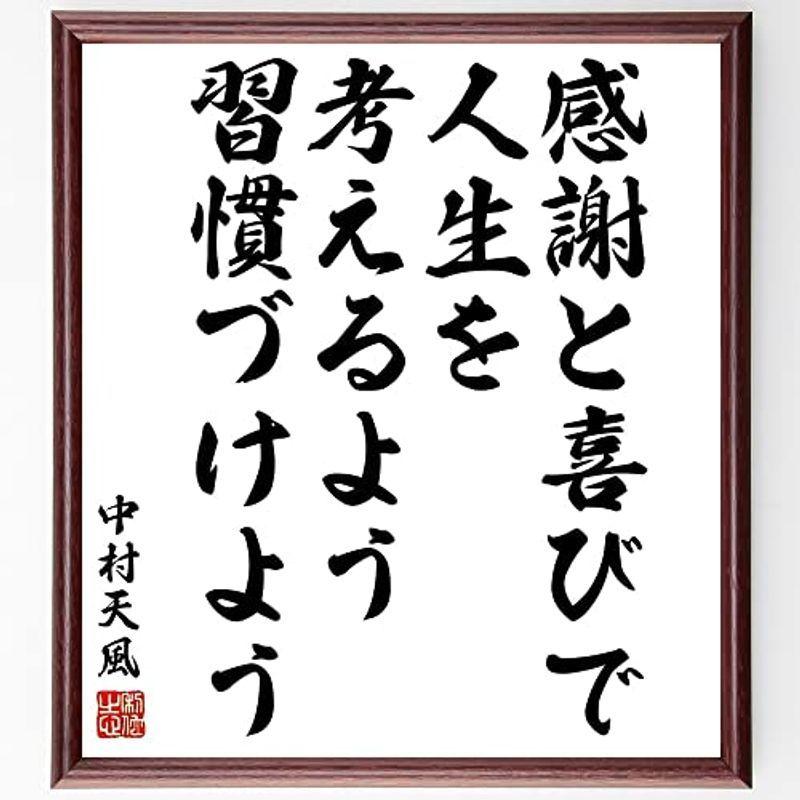 感謝と喜びで
人生を
考えるよう
習慣づけよう
中村天風